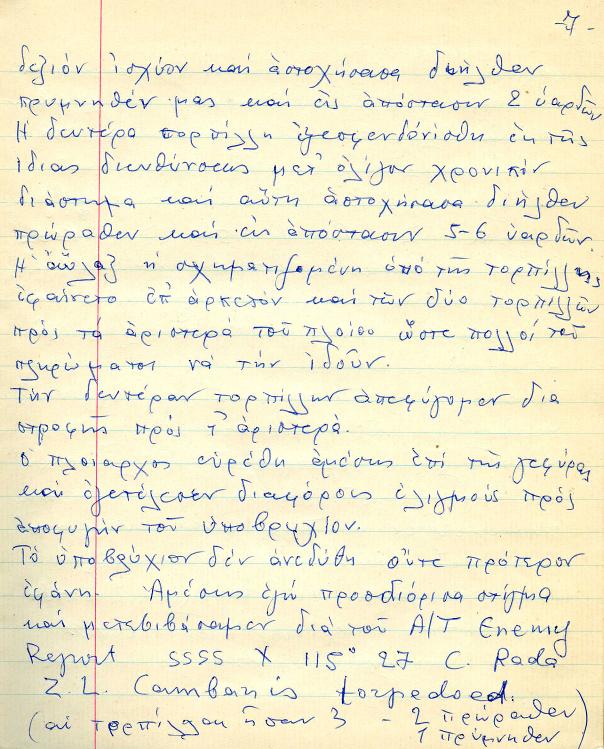 -7-
δεξιόν ἰσχύον καί ἀστοχήσασα διῆλθεν
πρυμνηθέν μας καί εἰς ἀπόστασιν 2 ὑαρδῶν
Η δευτέρα τορπίλλη ἐξεσφενδονίσθη ἐκ τῆς
ἰδίας διευθύνσεως μετ' ὀλίγον χρονικόν
διάστημα καί αὕτη ἀστοχήσασα διῆλθεν
πρώραθεν καί εἰς ἀπόστασιν 5-6 ὑαρδῶν.
Η αὖλαξ ἡ σχηματιζομένη ὑπό τῆς τορπίλλης
ἐφαίνετο ἐπ' ἀρκετόν καί τῶν δύο τορπιλλῶν
πρός τά ἀριστερά τοῦ πλοίου ὥστε πολλοί τοῦ
πληρώματος νά τήν ἰδοῦν.
Τήν δευτέραν τορπίλλην ἀπεφύγομεν δια
στροφῆς πρός τ' ἀριστερά.
Ο πλοίαρχος εὑρέθη ἀμέσως ἐπί τῆς γεφύρας
καί ἐξετέλεσεν διαφόρους ἑλιγμούς πρός
ἀποφυγήν τοῦ ὑποβρυχίου.
Τό ὑποβρύχιον δέν ἀνεδύθη οὔτε πρότερον
ἐφάνη. Ἀμέσως ἐγώ προσδιόρισα στίγμα
καί μετεβιβάσαμεν διά τοῦ Α/Τ Enemy
Report SSSS X 115° 27 C. Rada
Z. L. Cambanis torpedoed.
(αἱ τορπίλλαι ἦσαν 3 - 2 πρώραθεν
1 πρύμνηθεν)